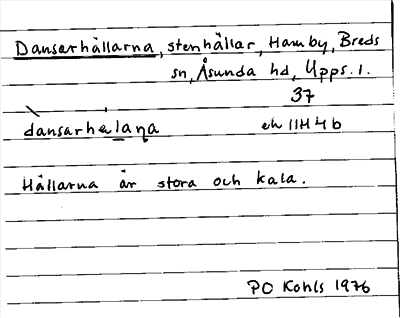 Dansarhällarna, stenhällar, Hamby, Breds
sn, Åsunda hd, Upps. l.
37
dansarhalana ek 11H4b
Hällarna är stora och kala.
PO Kohls 1976